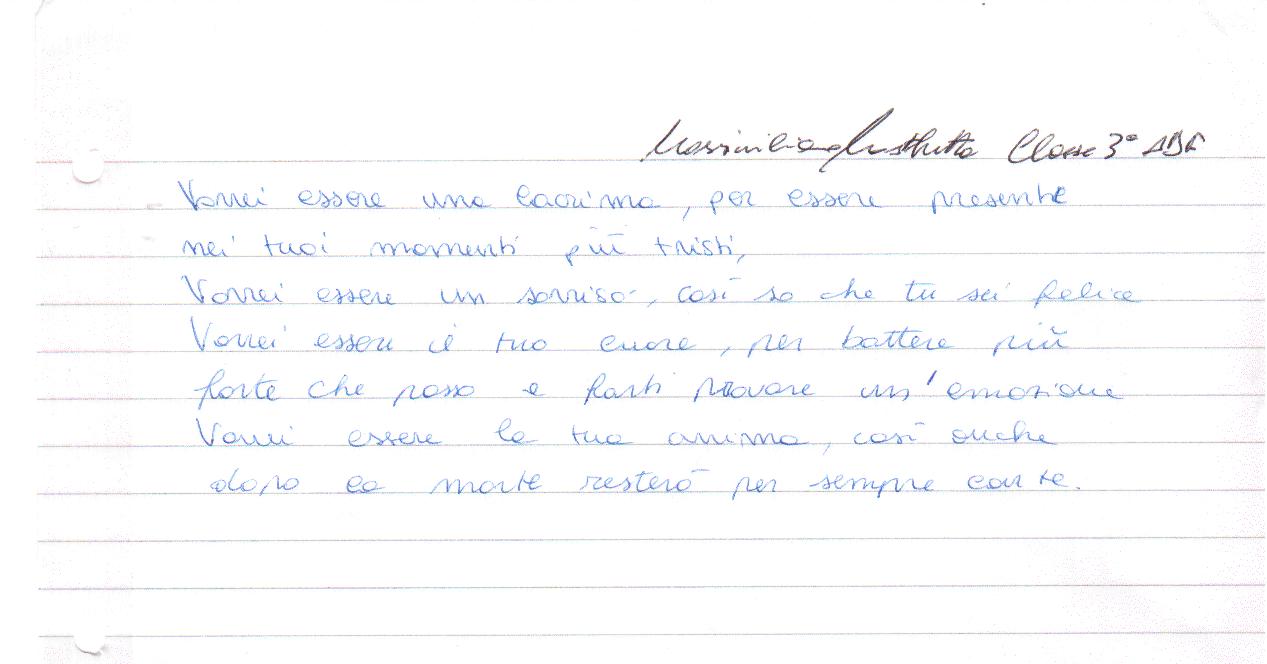 Massimiliano Classe 3°
Vorrei essere una lacrima, per essere presente
nei tuoi momenti più tristi,
Vorrei essere un sorriso, così so che tu sei felice
Vorrei essere il tuo cuore, per battere più
forte che posso e farti provare un'emozione
Vorrei essere la tua anima, così anche
dopo la morte resterò per sempre con te.